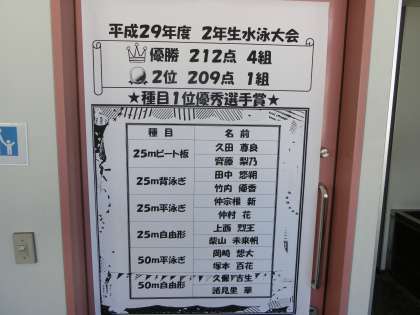 平成29年度 2年生水泳大会
優勝 212点 4組
2位 209点 1組
★種目1位優秀選手賞★
種目 名前
25mビート板 久田 尊良
齊藤 梨乃
25m背泳ぎ 田中 悠朔
竹内 優香
25m平泳ぎ 仲宗根 新
仲村 花
25m自由形 上西 烈王
柴山 未来帆
50m平泳ぎ 岡崎 想大
塚本 百花
50m自由形 久保 吉生
諸見里 華